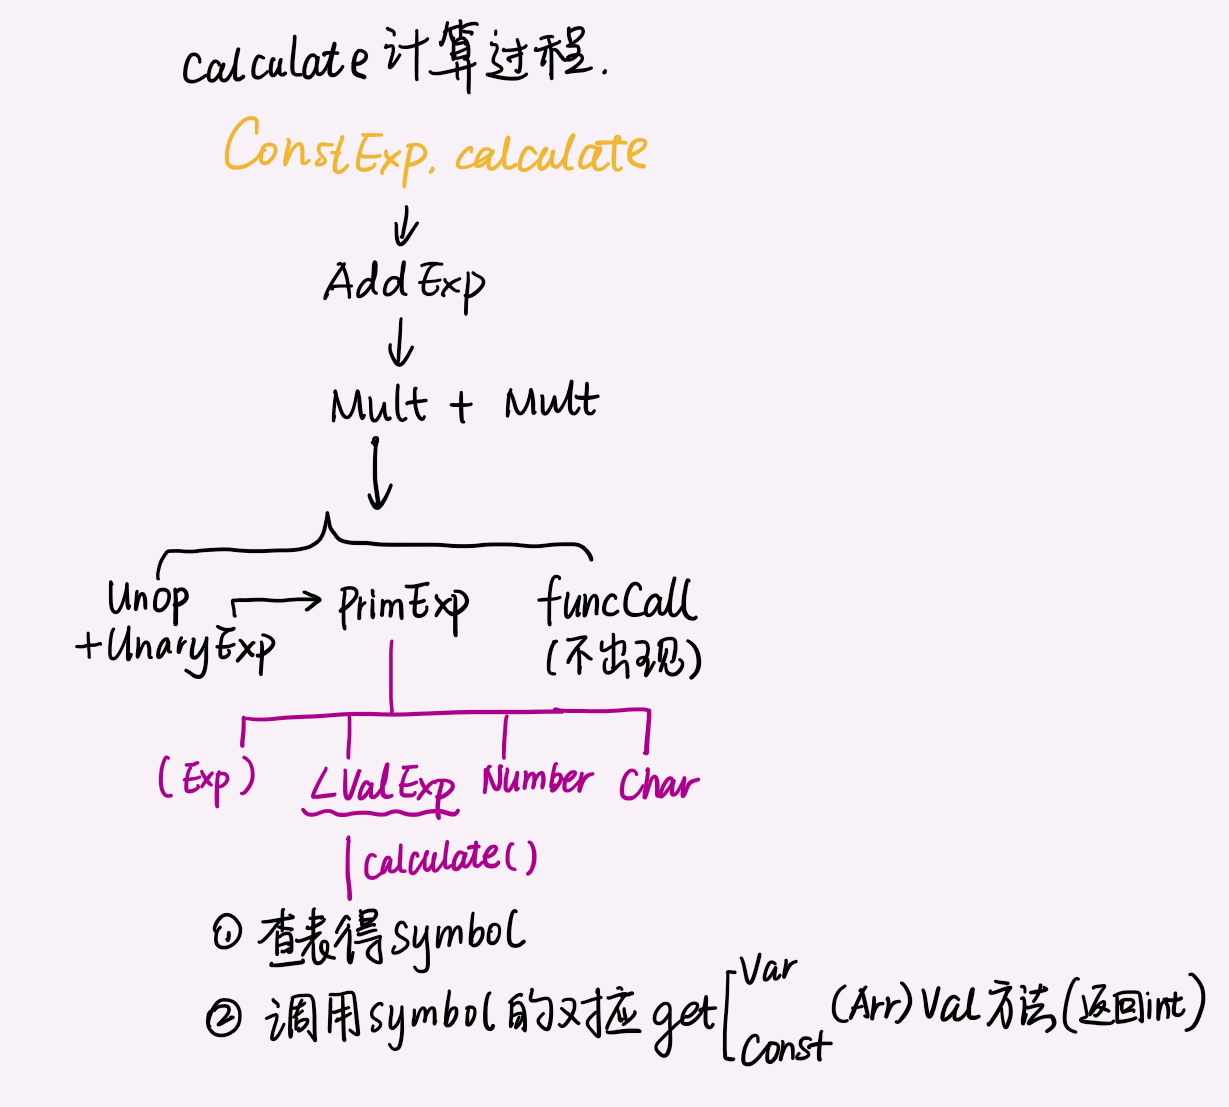 calculate 计算过程.
ConstExp. calculate
AddExp
Mult + Mult
Unop PrimExp funcCall
+UnaryExp (不出现)
(Exp) LValExp Number Char
calculate()
① 查表得symbol
② 调用symbol的对应get Var Const (Arr)Val方法(返回int)